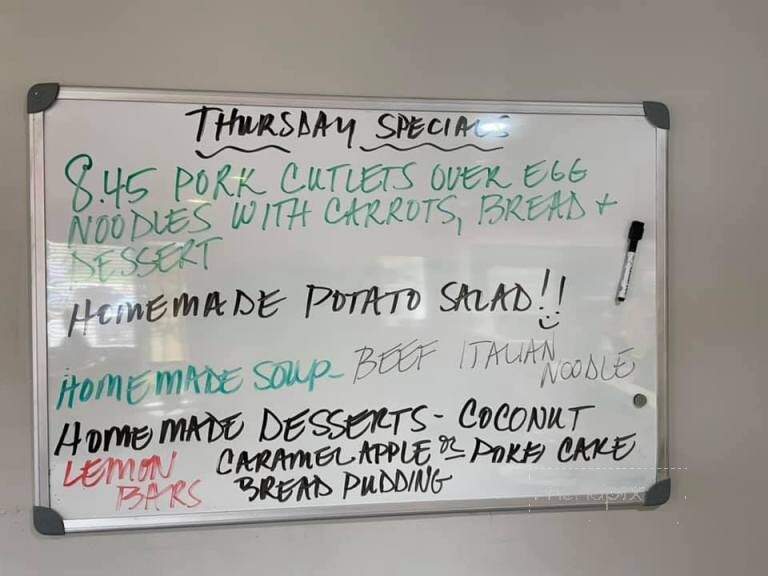 THURSDAY SPECIALS
8.45 PORK CUTLETS OVER EGG
NOODLES WITH CARROTS, BREAD +
DESSERT
HOMEMADE POTATO SALAD!!
HOMEMADE SOUP- BEEF ITALIAN
NOODLE
HOMEMADE DESSERTS- COCONUT
LEMON CARAMEL APPLE OR POKE CAKE
BARS BREAD PUDDING